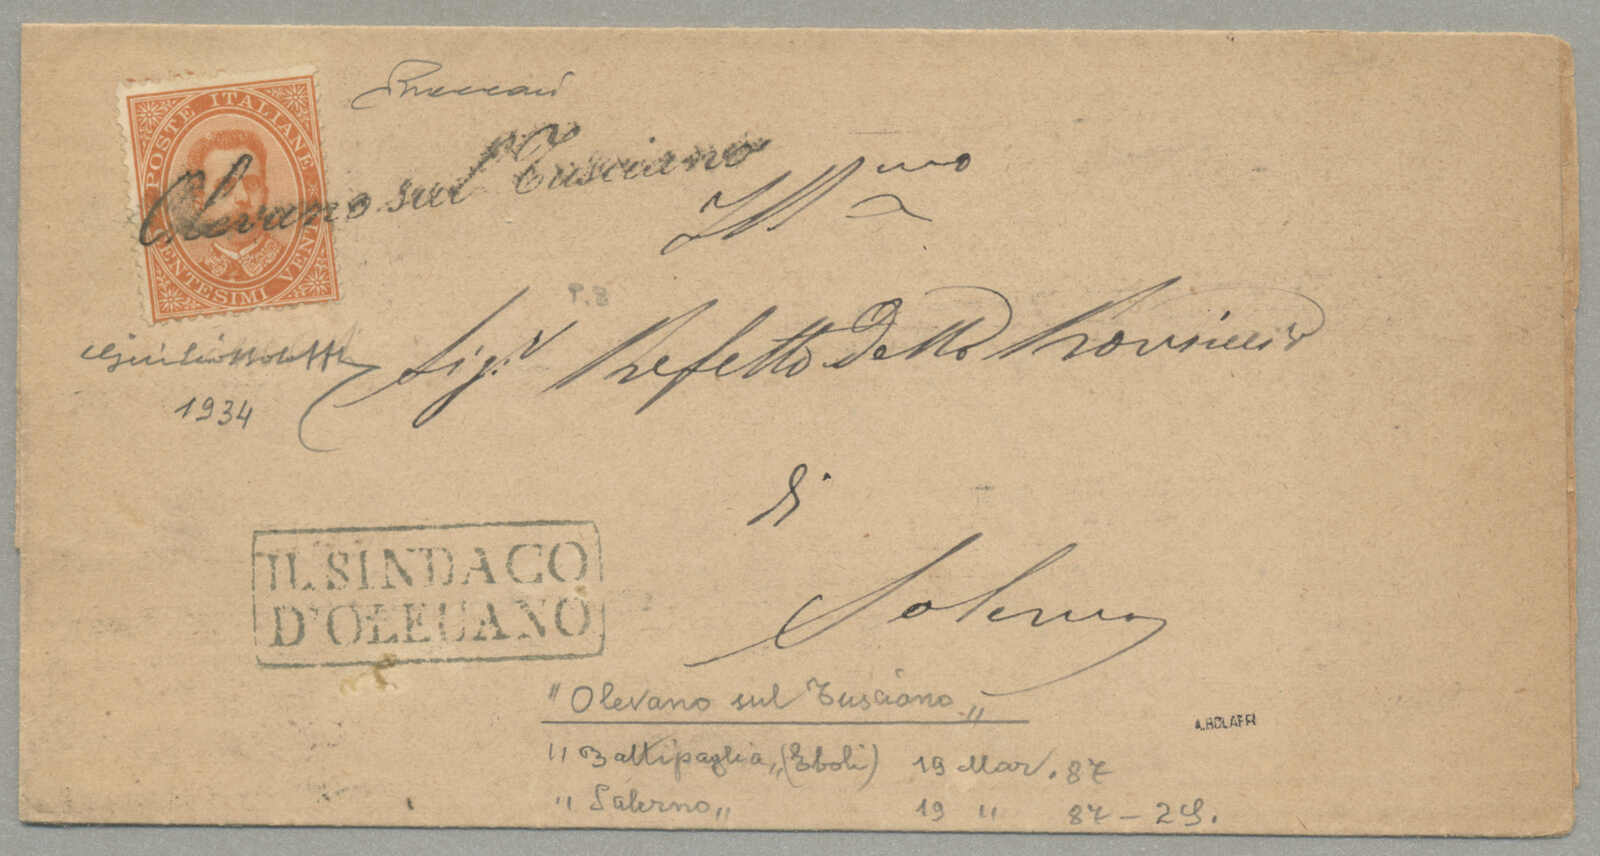 POSTE ITALIANE
CENTESIMI VENTI
Olevano sul Tusciano
Ill.mo
P.B
Sig.r Prefetto della Provincia
1934
di
Salerno
IL SINDACO
D'OLEUANO
" Olevano sul Tusciano "
" Battipaglia " (Eboli) 19 Mar. 87
" Salerno " 19 " 87 - 2S.
A.BOLAFFI